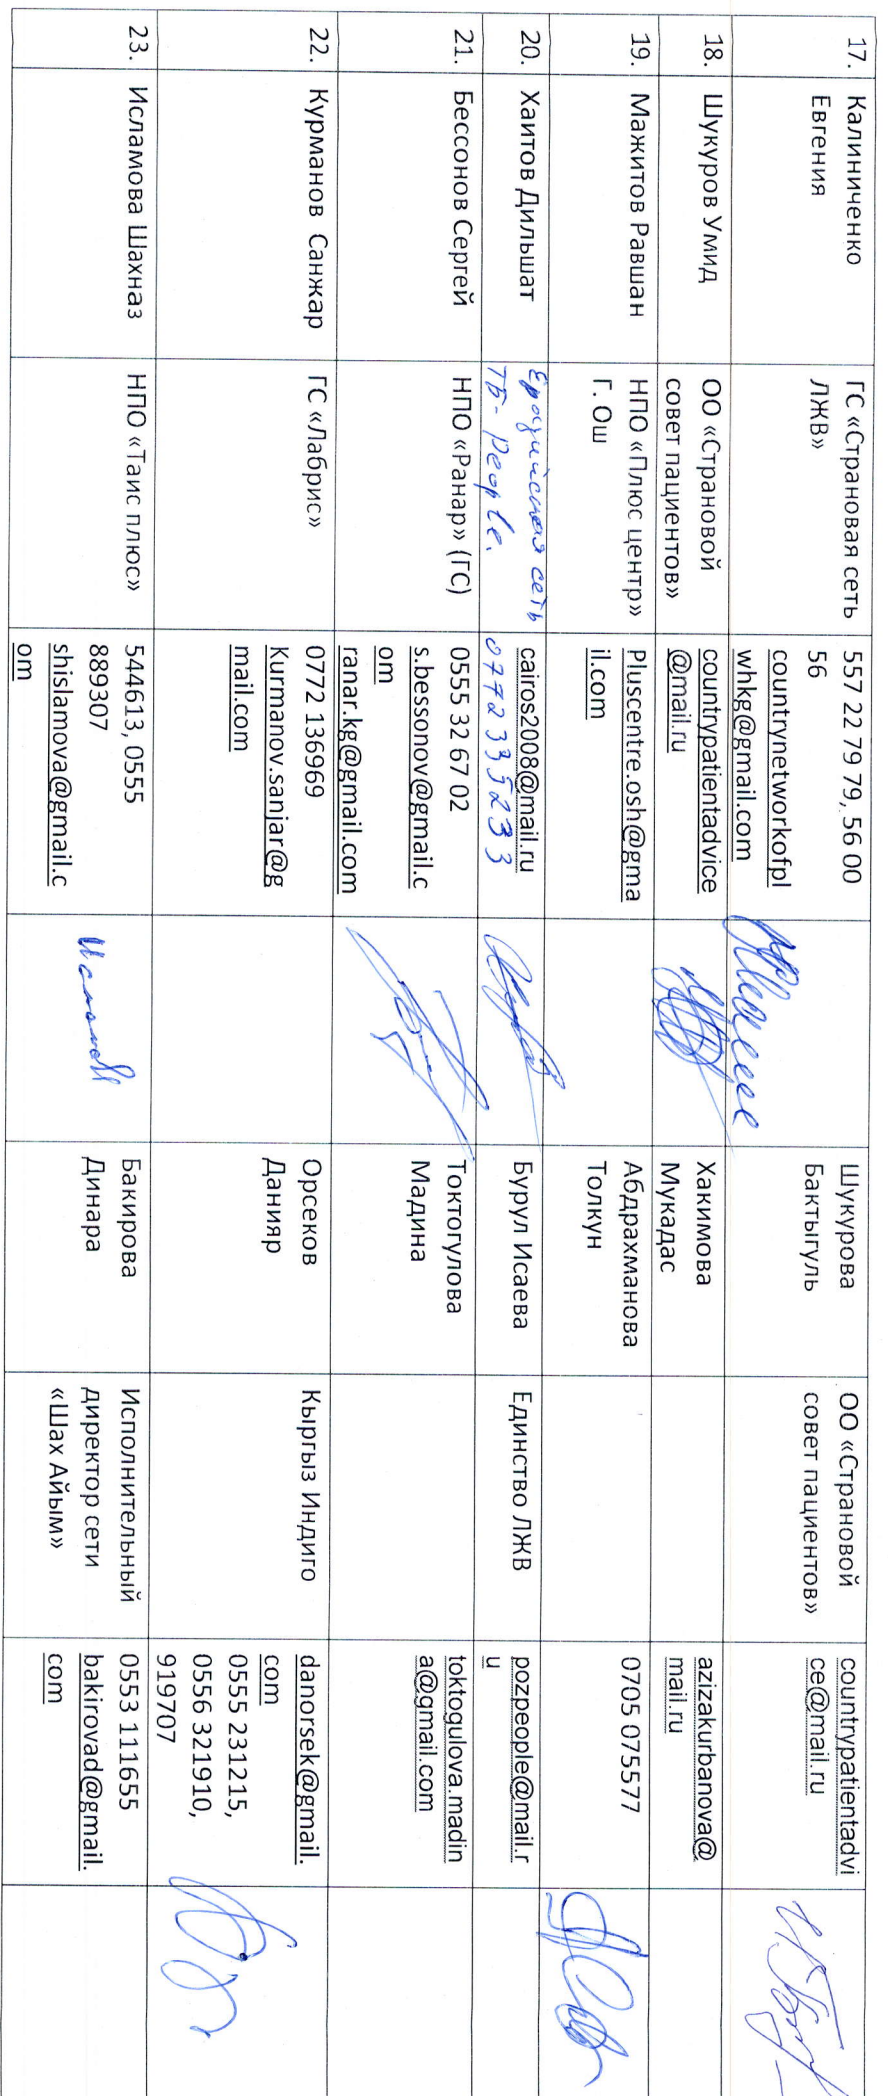 17.
Калиниченко
Евгения
ГС «Страновая сеть
ЛЖВ»
557 22 79 79, 56 00
56
countrynetworkofpl
whkg@gmail.com
Шукурова
Бактыгуль
ОО «Страновой
совет пациентов»
countrypatientadvi
ce@mail.ru
18.
Шукуров Умид
ОО «Страновой
совет пациентов»
countrypatientadvice
@mail.ru
Хакимова
Мукадас
azizakurbanova@
mail.ru
19.
Мажитов Равшан
НПО «Плюс центр»
Г. Ош
Pluscentre.osh@gma
il.com
Абдрахманова
Толкун
0705 075577
20.
Хаитов Дильшат
сеть
ТБ- People.
cairos2008@mail.ru
0772335233
Бурул Исаева
Единство ЛЖВ
pozpeople@mail.r
u
21.
Бессонов Сергей
НПО «Ранар» (ГС)
0555 32 67 02
s.bessonov@gmail.c
om
ranar.kg@gmail.com
Токтогулова
Мадина
toktogulova.madin
a@gmail.com
22.
Курманов Санжар
ГС «Лабрис»
0772 136969
Kurmanov.sanjar@g
mail.com
Орсеков
Данияр
Кыргыз Индиго
danorsek@gmail.
com
0555 231215,
0556 321910,
919707
23.
Исламова Шахназ
НПО «Таис плюс»
544613, 0555
889307
shislamova@gmail.c
om
Бакирова
Динара
Исполнительный
директор сети
«Шах Айым»
0553 111655
bakirovad@gmail.
com